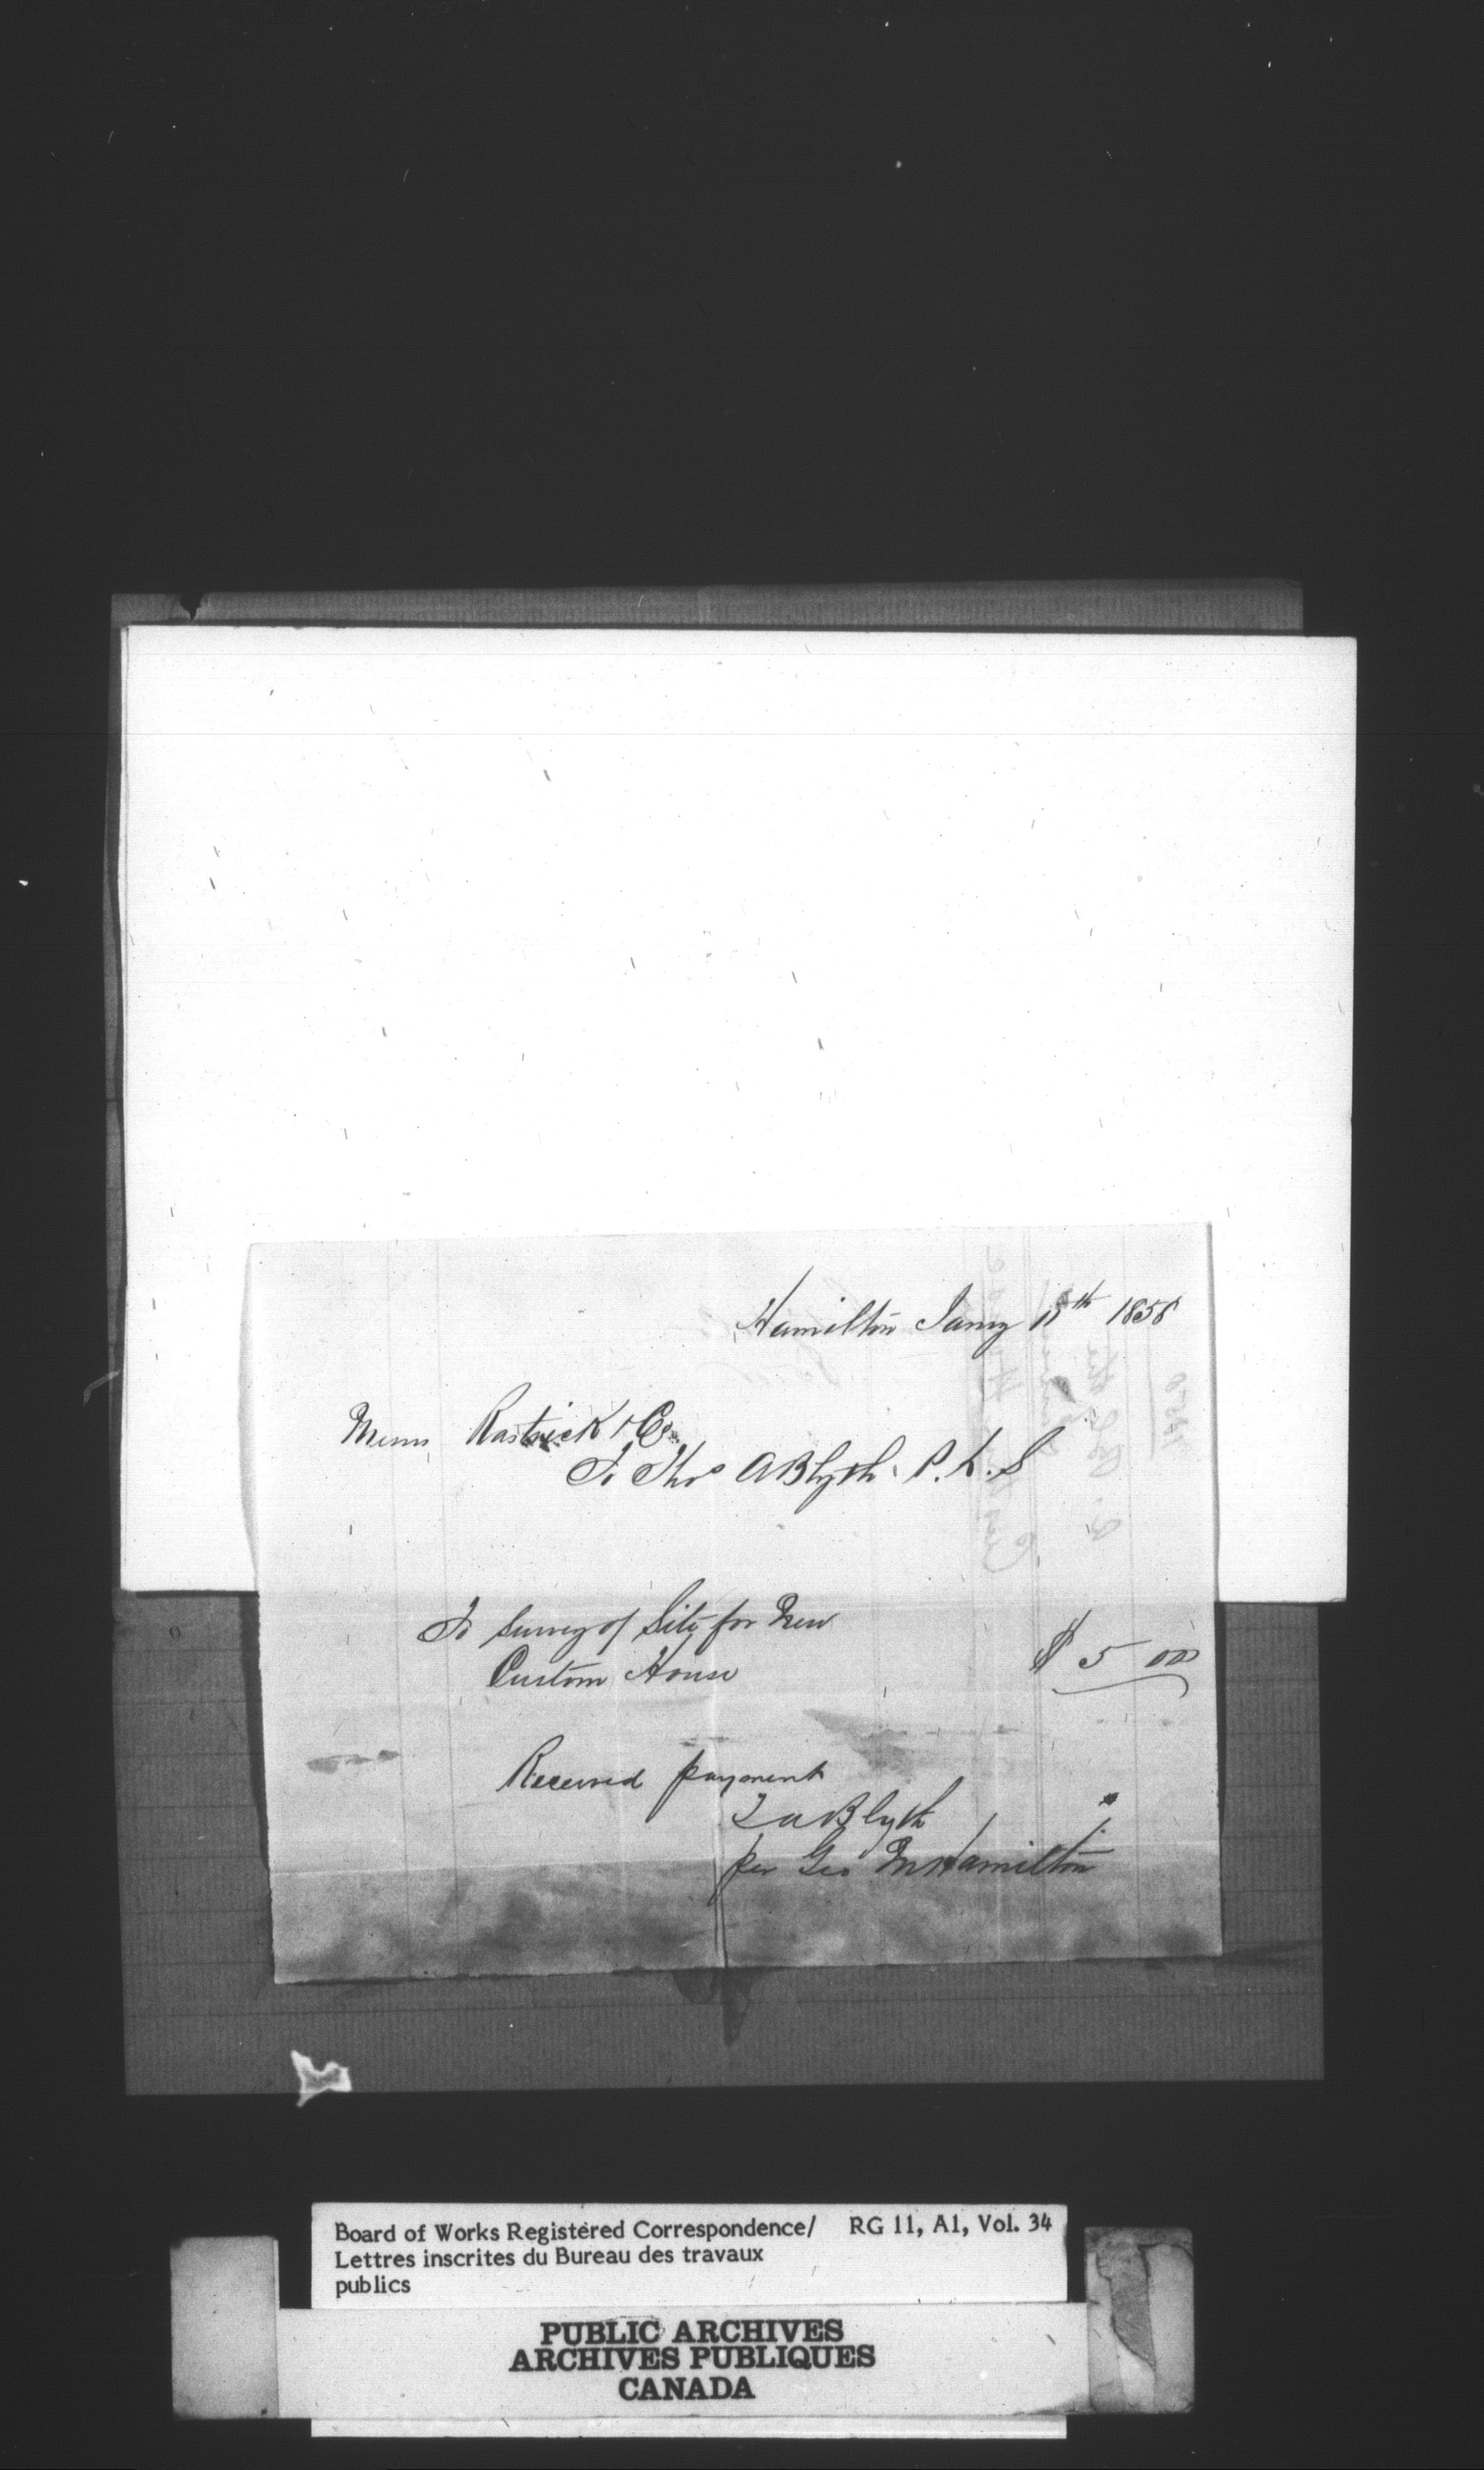 Hamilton Jany 11th 1858
Messrs Rastrick & Co.
To Thos A Blyth P. L. S
To Survey of Site for New
Custom House $ 5 00
Received payment
T A Blyth
per Geo M Hamilton
Board of Works Registered Correspondence/ RG 11, A1, Vol. 34
Lettres inscrites du Bureau des travaux
publics
PUBLIC ARCHIVES
ARCHIVES PUBLIQUES
CANADA